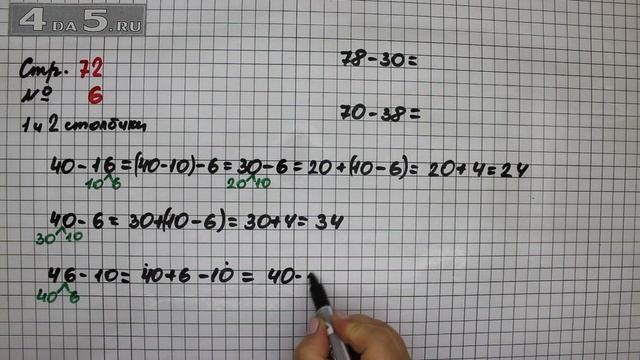 4DA5.RU
Стр. 72
№ 6
1 и 2 столбики
78-30=
70-38=
40-16=(40-10)-6=30-6=20+(10-6)=20+4=24
10 6 20 10
40-6=30+(10-6)=30+4=34
30 10
46-10=40+6-10=40-
40 6